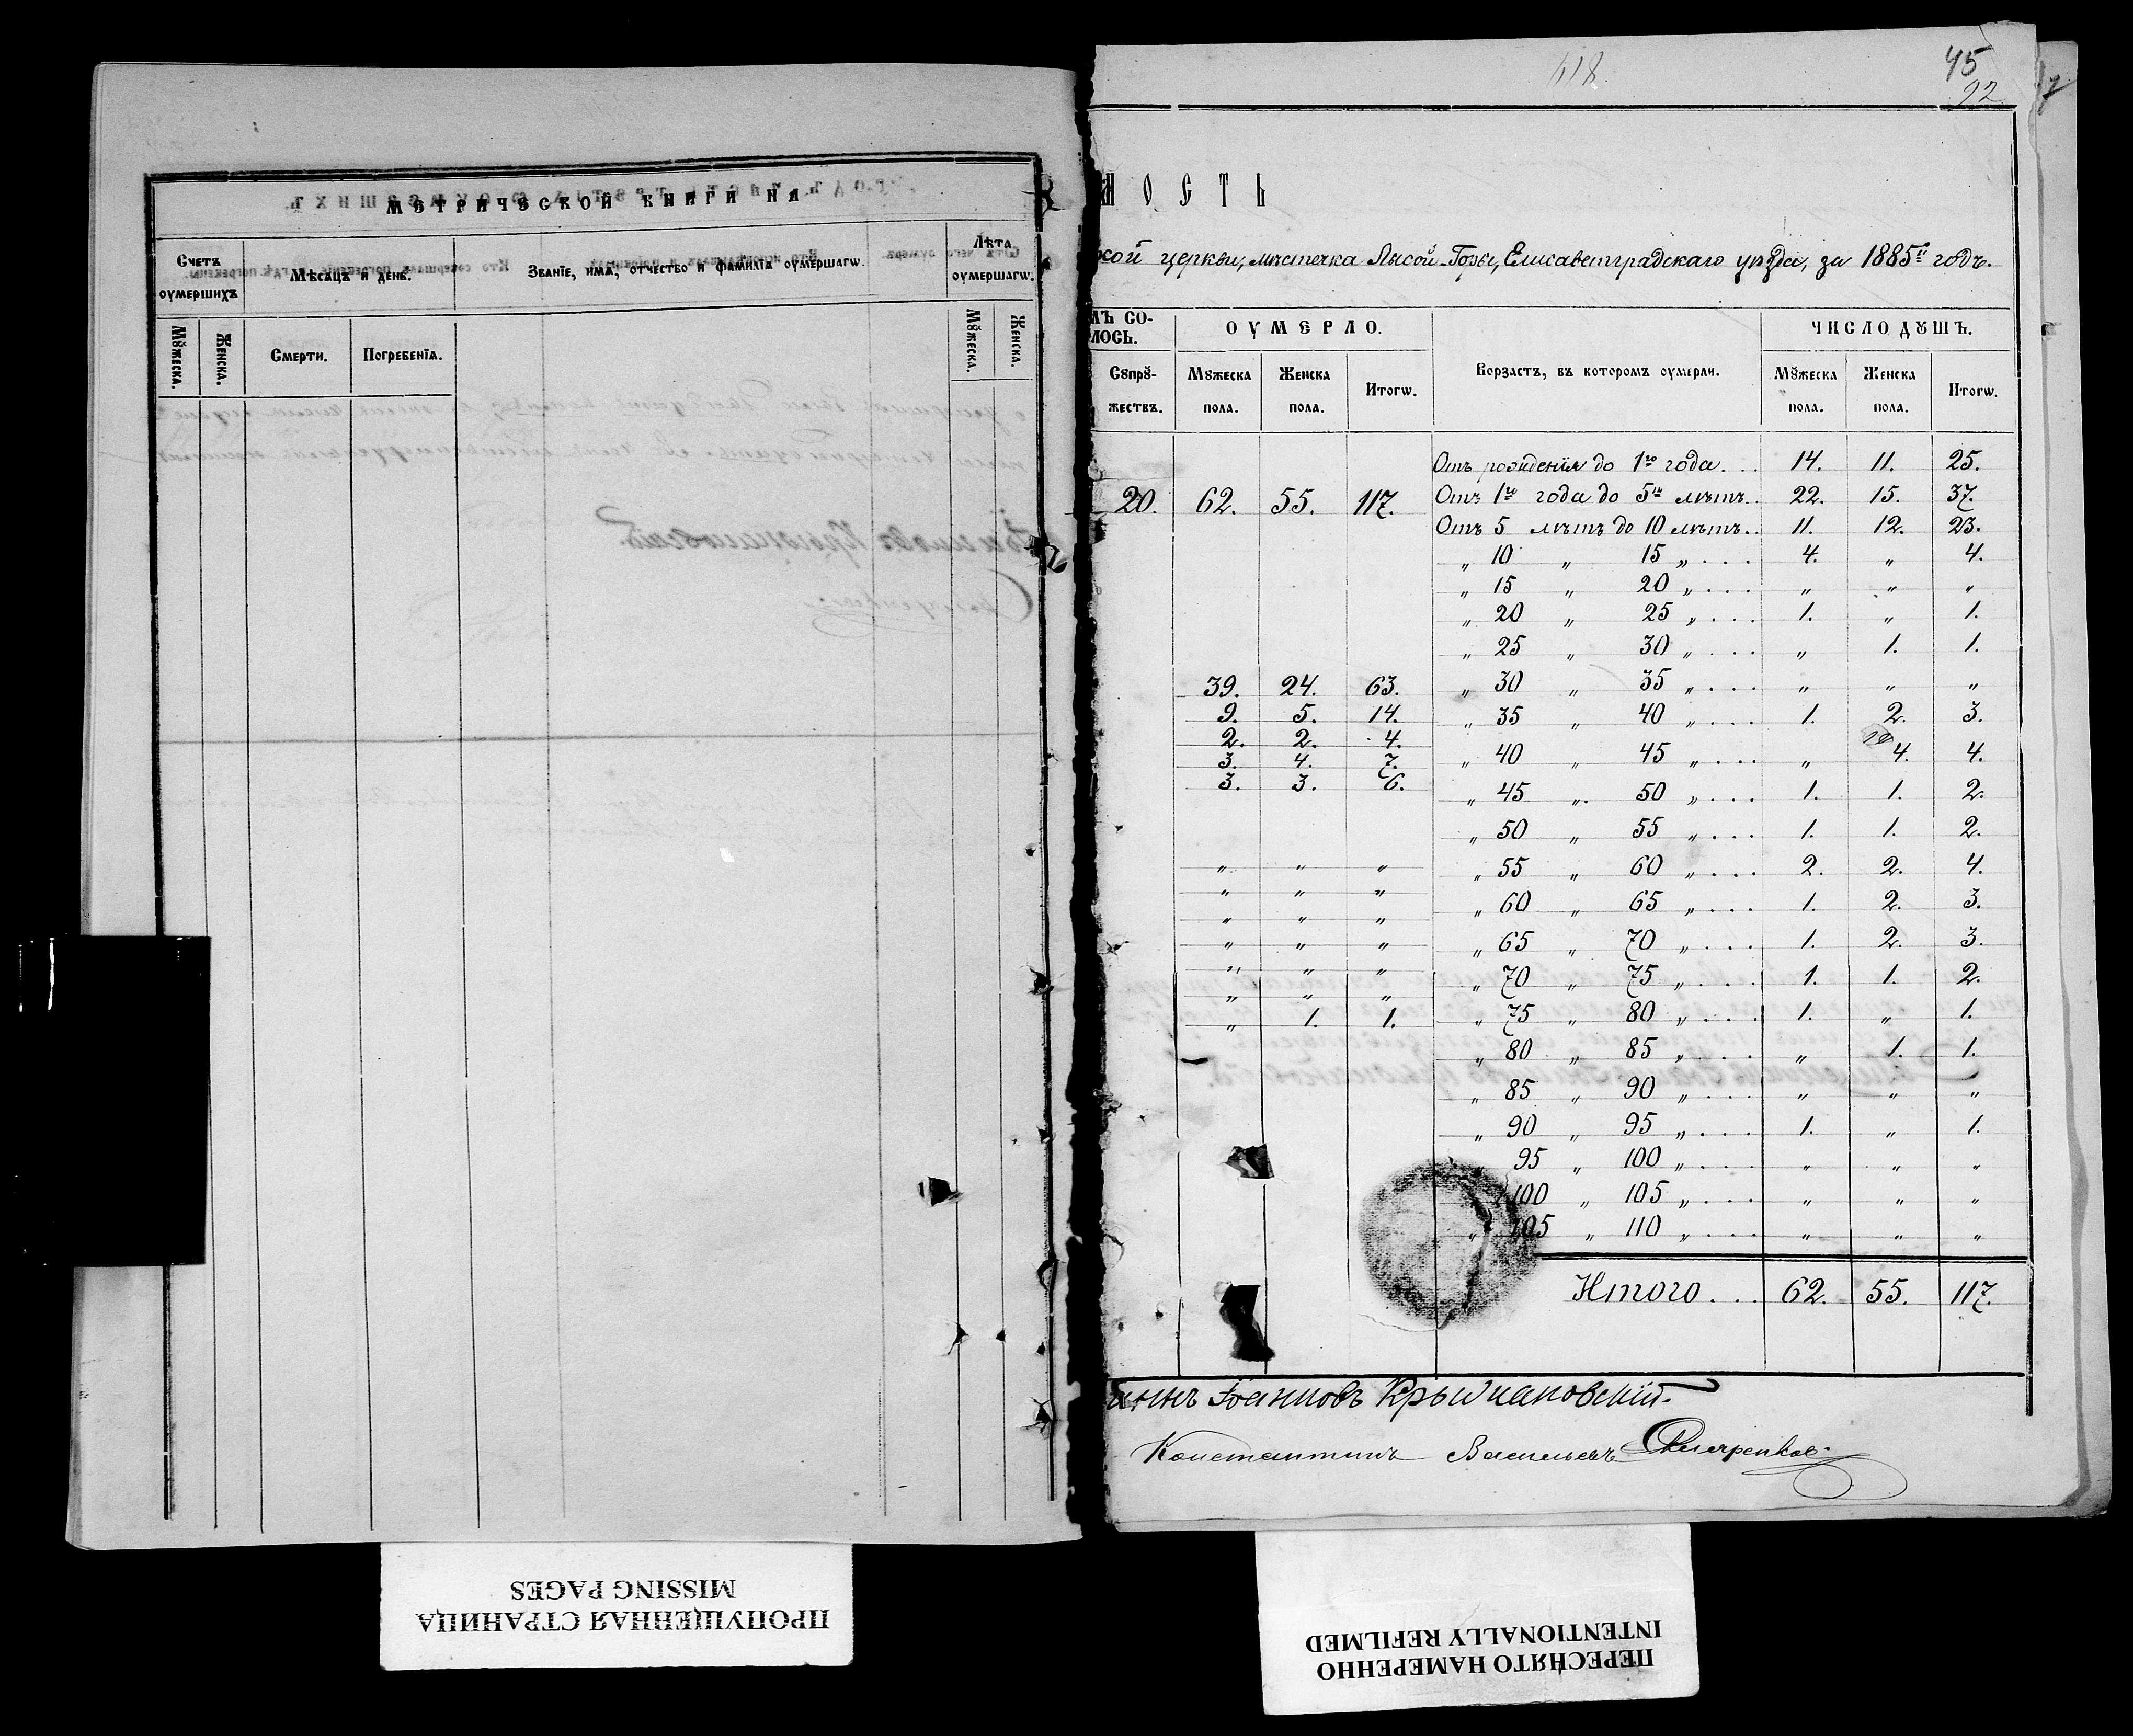 МЕТРИЧЕСКОЙ КНИГИ НА
Счетъ оумершихъ
Мѣсяцъ и день.
Званїе, имѧ, отчество и фамилїа оумершагѡ.
Лѣта оумершагѡ.
Мꙋжеска.
Женска.
Смерти.
Погребенїа.
Мꙋжеска.
Женска.
618.
45
92
ОСТЬ
кой церкви, мѣстечка Лысой-Горы, Елисаветградскаго уѣзда, за 1885й годъ.
ОУМЕРЛО.
Возрастъ, въ которомъ оумерли.
ЧИСЛО ДꙋШЪ.
Сꙋпрꙋ-жествъ.
Мꙋжеска пола.
Женска пола.
Итогѡ.
Мꙋжеска пола.
Женска пола.
Итогѡ.
Отъ рожденїя до 1го года... 14. 11. 25.
20. 62. 55. 117. Отъ 1го года до 5ти лѣтъ.. 22. 15. 37.
Отъ 5 лѣтъ до 10 лѣтъ.. 11. 12. 23.
„ 10 „ 15 „... 4. „ 4.
„ 15 „ 20 „... „ „ „
„ 20 „ 25 „... 1. „ 1.
„ 25 „ 30 „... „ 1. 1.
39. 24. 63. „ 30 „ 35 „... „ „ „
9. 5. 14. „ 35 „ 40 „... 1. 2. 3.
2. 2. 4.
3. 4. 7. „ 40 „ 45 „... „ 4. 4.
3. 3. 6. „ 45 „ 50 „... 1. 1. 2.
„ 50 „ 55 „... 1. 1. 2.
„ „ „ „ 55 „ 60 „... 2. 2. 4.
„ „ „ „ 60 „ 65 „... 1. 2. 3.
„ „ „
„ „ „ „ 65 „ 70 „... 1. 2. 3.
„ „ „ „ 70 „ 75 „... 1. 1. 2.
„ „ „
„ 1. 1. „ 75 „ 80 „... 1. „ 1.
„ 80 „ 85 „... „ 1. 1.
„ 85 „ 90 „... „ „ „
„ 90 „ 95 „... 1. „ 1.
„ 95 „ 100 „... „ „ „
100 „ 105 „... „ „ „
„ 105 „ 110 „... „ „ „
Итого... 62. 55. 117.
Іоанновъ Крыжановскїй.
Константинъ Васильевъ
ПРОПУЩЕННАЯ СТРАНИЦА
MISSING PAGES
ПЕРЕСНЯТО НАМЕРЕННО
INTENTIONALLY REFILMED